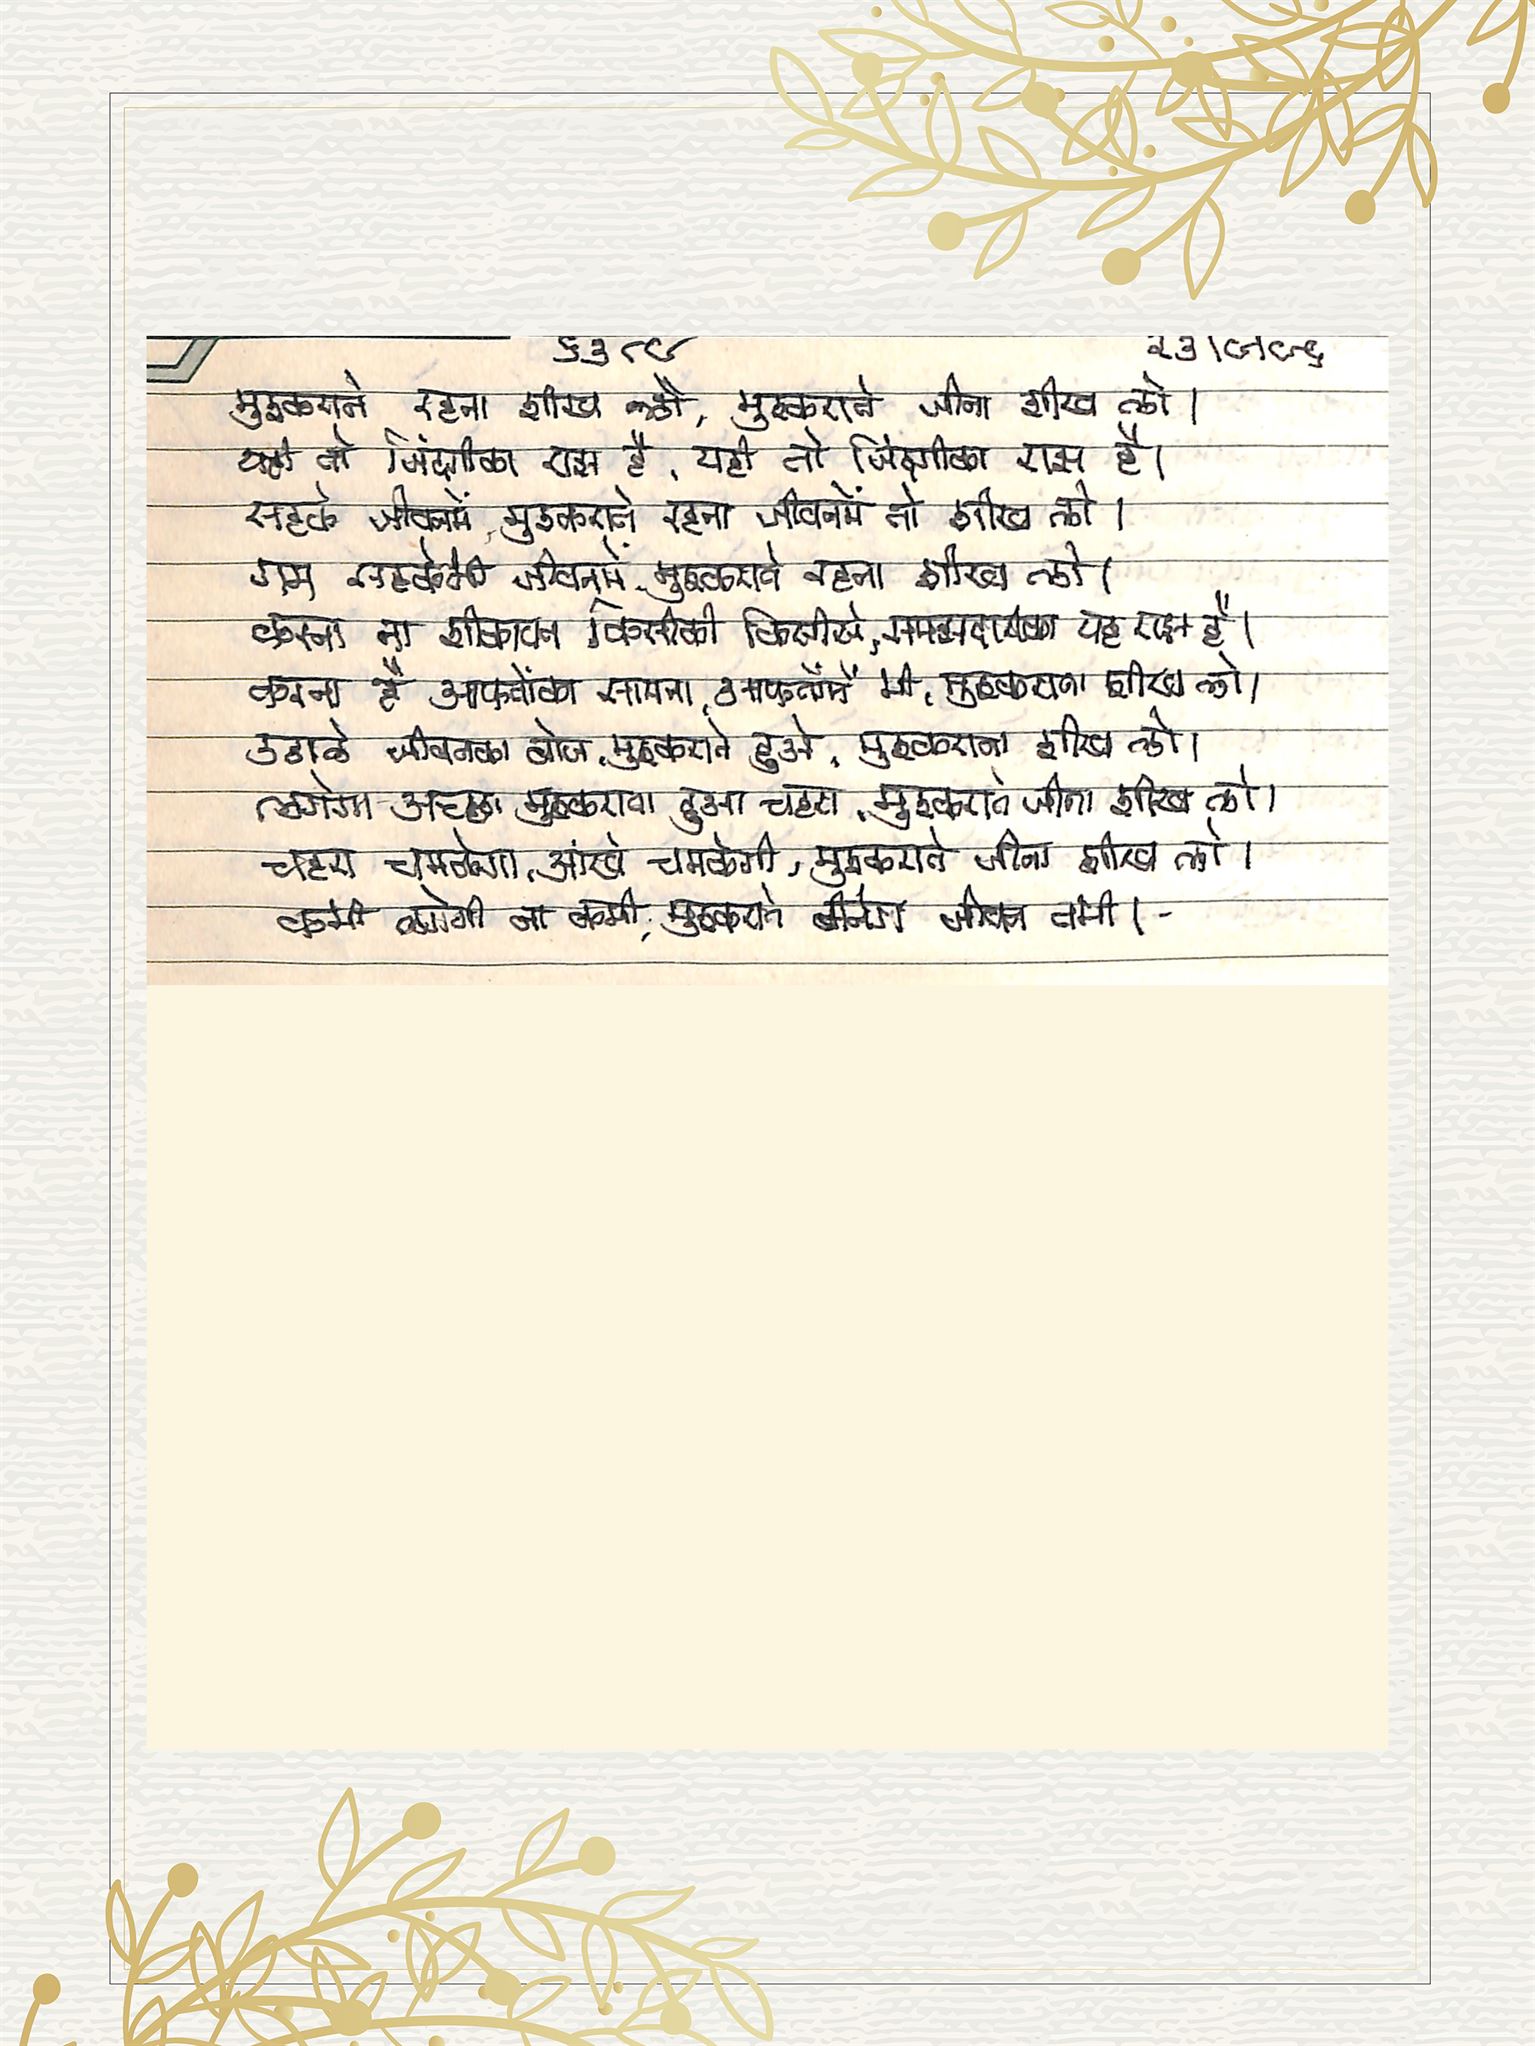 मुश्कराते रहना शीख लो, मुश्कराते जीना शीख लो।
यही तो जिंदगीका राझ है, यही तो जिंदगीका राझ है।
सहके जीवनमें, मुश्कराते रहना जीवनमें तो शीख लो।
गम सहकेभी जीवनमें, मुश्कराते रहना शीख लो।
करना ना शीकायत किसीकी किसीसे, समझदारीका यह राझ है।
करना है आफतोंका सामना, आफतोंमें भी, मुश्कराना शीख लो।
उठाके जीवनका बोज, मुश्कराते हुओ, मुश्कराना शीख लो।
लगेगा अच्छा मुश्कराता हुआ चहरा, मुश्कराते जीना शीख लो।
चहरा चमकेगा, आंखे चमकेगी, मुश्कराते जीना शीख लो।
कमी लगेगी ना कभी, मुश्कराते जीवन तभी।-